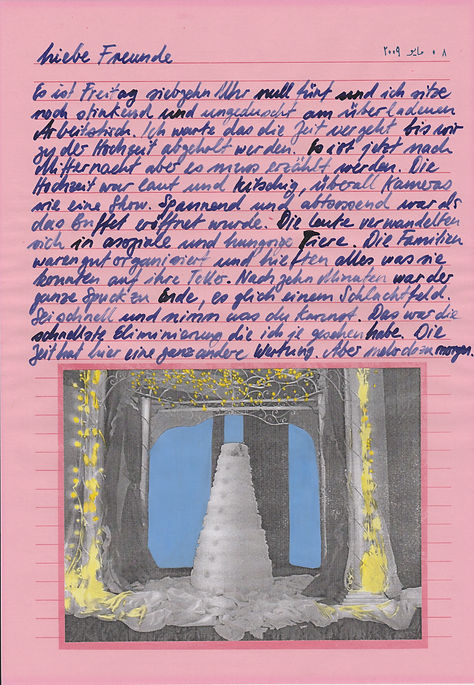 liebe Freunde
٠٨ مايو ٢٠٠٩
Es ist Freitag siebzehn Uhr null fünf und ich sitze
noch stinkend und ungeduscht am überladenen
Arbeitstisch. Ich warte das die Zeit vergeht bis wir
zu der Hochzeit abgeholt werden. Es ist jetzt nach
Mitternacht aber es muss erzählt werden. Die
Hochzeit war laut und kitschig, überall Kameras
wie eine Show. Spannend und abtossend war als
das Buffet eröffnet wurde. Die leute verwandelten
sich in asoziale und hungrige Tiere. Die Familien
waren gut organisiert und hieften alles was sie
konnten auf ihre Teller. Nach zehn Minuten war der
ganze Spuck zu Ende, es glich einem Schlachtfeld.
Sei schnell und nimm was du kannst. Das war die
schnellste Eliminierung die ich je gesehen habe. Die
Zeit hat hier eine ganz andere Wertung. Aber mehr dazu morgen.